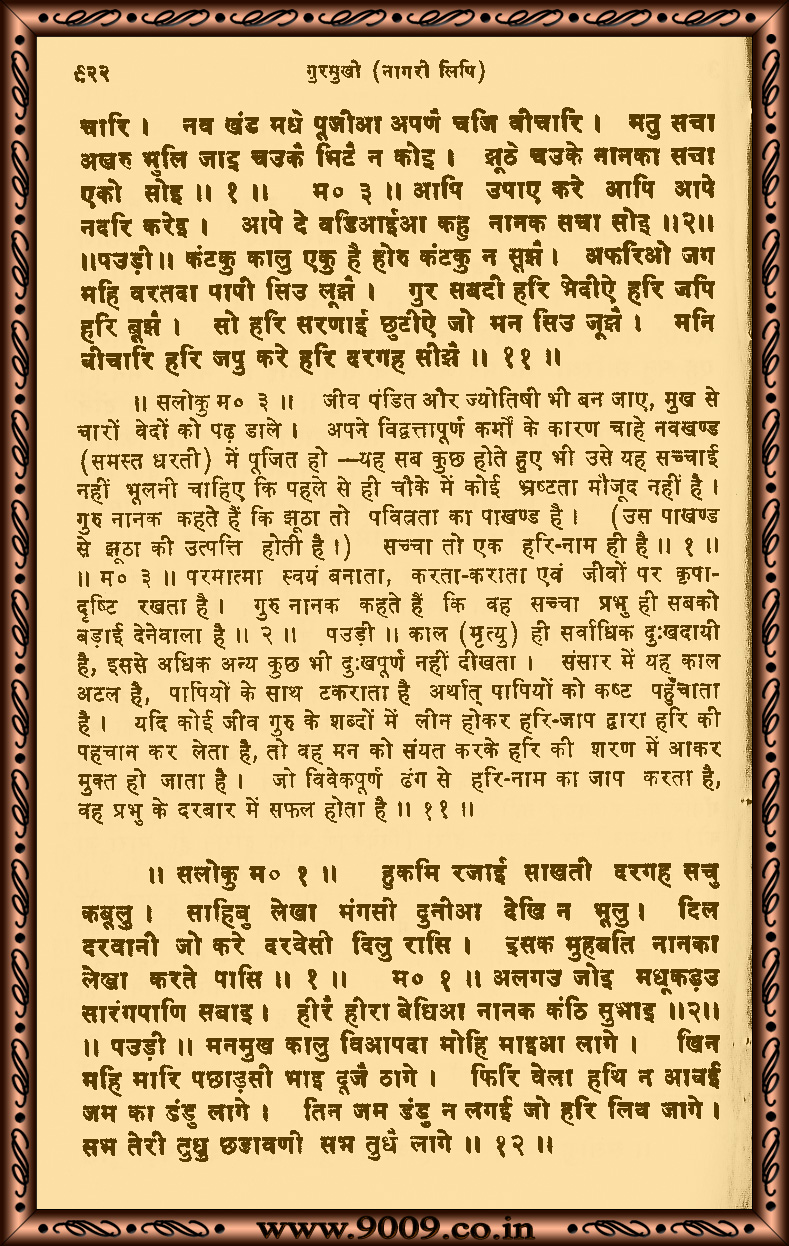 ९२२ गुरमुखी (नागरी लिपि)
चारि । नव खंड मधे पूजीआ अपणै चजि वीचारि । मतु सचा
अखरु भुलि जाइ चउकै भिटै न कोइ । झूठे चउके नानका सचा
एको सोइ ॥ १ ॥ म० ३ ॥ आपि उपाए करे आपि आपे
नदरि करेइ । आपे दे वडिआईआ कहु नानक सचा सोइ ॥२॥
॥पउड़ी॥ कंटकु कालु एकु है होरु कंटकु न सूझै । अफरिओ जग
महि वरतदा पापी सिउ लूझै । गुर सबदी हरि भेदीऐ हरि जपि
हरि बूझै । सो हरि सरणाई छुटीऐ जो मन सिउ जूझै । मनि
वीचारि हरि जपु करे हरि दरगह सीझै ॥ ११ ॥
॥ सलोकु म० ३ ॥ जीव पंडित और ज्योतिषी भी बन जाए, मुख से
चारों वेदों को पढ़ डाले । अपने विद्वत्तापूर्ण कर्मों के कारण चाहे नवखण्ड
(समस्त धरती) में पूजित हो —यह सब कुछ होते हुए भी उसे यह सच्चाई
नहीं भूलनी चाहिए कि पहले से ही चौके में कोई भ्रष्टता मौजूद नहीं है ।
गुरु नानक कहते हैं कि झूठा तो पवित्रता का पाखण्ड है । (उस पाखण्ड
से झूठा की उत्पत्ति होती है ।) सच्चा तो एक हरि-नाम ही है ॥ १ ॥
॥ म० ३ ॥ परमात्मा स्वयं बनाता, करता-कराता एवं जीवों पर कृपा-
दृष्टि रखता है । गुरु नानक कहते हैं कि वह सच्चा प्रभु ही सबको
बड़ाई देनेवाला है ॥ २ ॥ पउड़ी ॥ काल (मृत्यु) ही सर्वाधिक दुःखदायी
है, इससे अधिक अन्य कुछ भी दुःखपूर्ण नहीं दीखता । संसार में यह काल
अटल है, पापियों के साथ टकराता है अर्थात् पापियों को कष्ट पहुँचाता
है । यदि कोई जीव गुरु के शब्दों में लीन होकर हरि-जाप द्वारा हरि की
पहचान कर लेता है, तो वह मन को संयत करके हरि की शरण में आकर
मुक्त हो जाता है । जो विवेकपूर्ण ढंग से हरि-नाम का जाप करता है,
वह प्रभु के दरबार में सफल होता है ॥ ११ ॥
॥ सलोकु म० १ ॥ हुकमि रजाई साखती दरगह सचु
कबूलु । साहिबु लेखा मंगसी दुनीआ देखि न भूलु । दिल
दरवानी जो करे दरवेसी दिलु रासि । इसक मुहबति नानका
लेखा करते पासि ॥ १ ॥ म० १ ॥ अलगउ जोइ मधूकड़उ
सारंगपाणि सबाइ । हीरै हीरा बेधिआ नानक कंठि सुभाइ ॥२॥
॥ पउड़ी ॥ मनमुख कालु विआपदा मोहि माइआ लागे । खिन
महि मारि पछाड़सी भाइ दूजै ठागे । फिरि वेला हथि न आवई
जम का डंडु लागे । तिन जम डंडु न लगई जो हरि लिव जागे ।
सभ तेरी तुधु छडावणी सभ तुधै लागे ॥ १२ ॥
www.9009.co.in